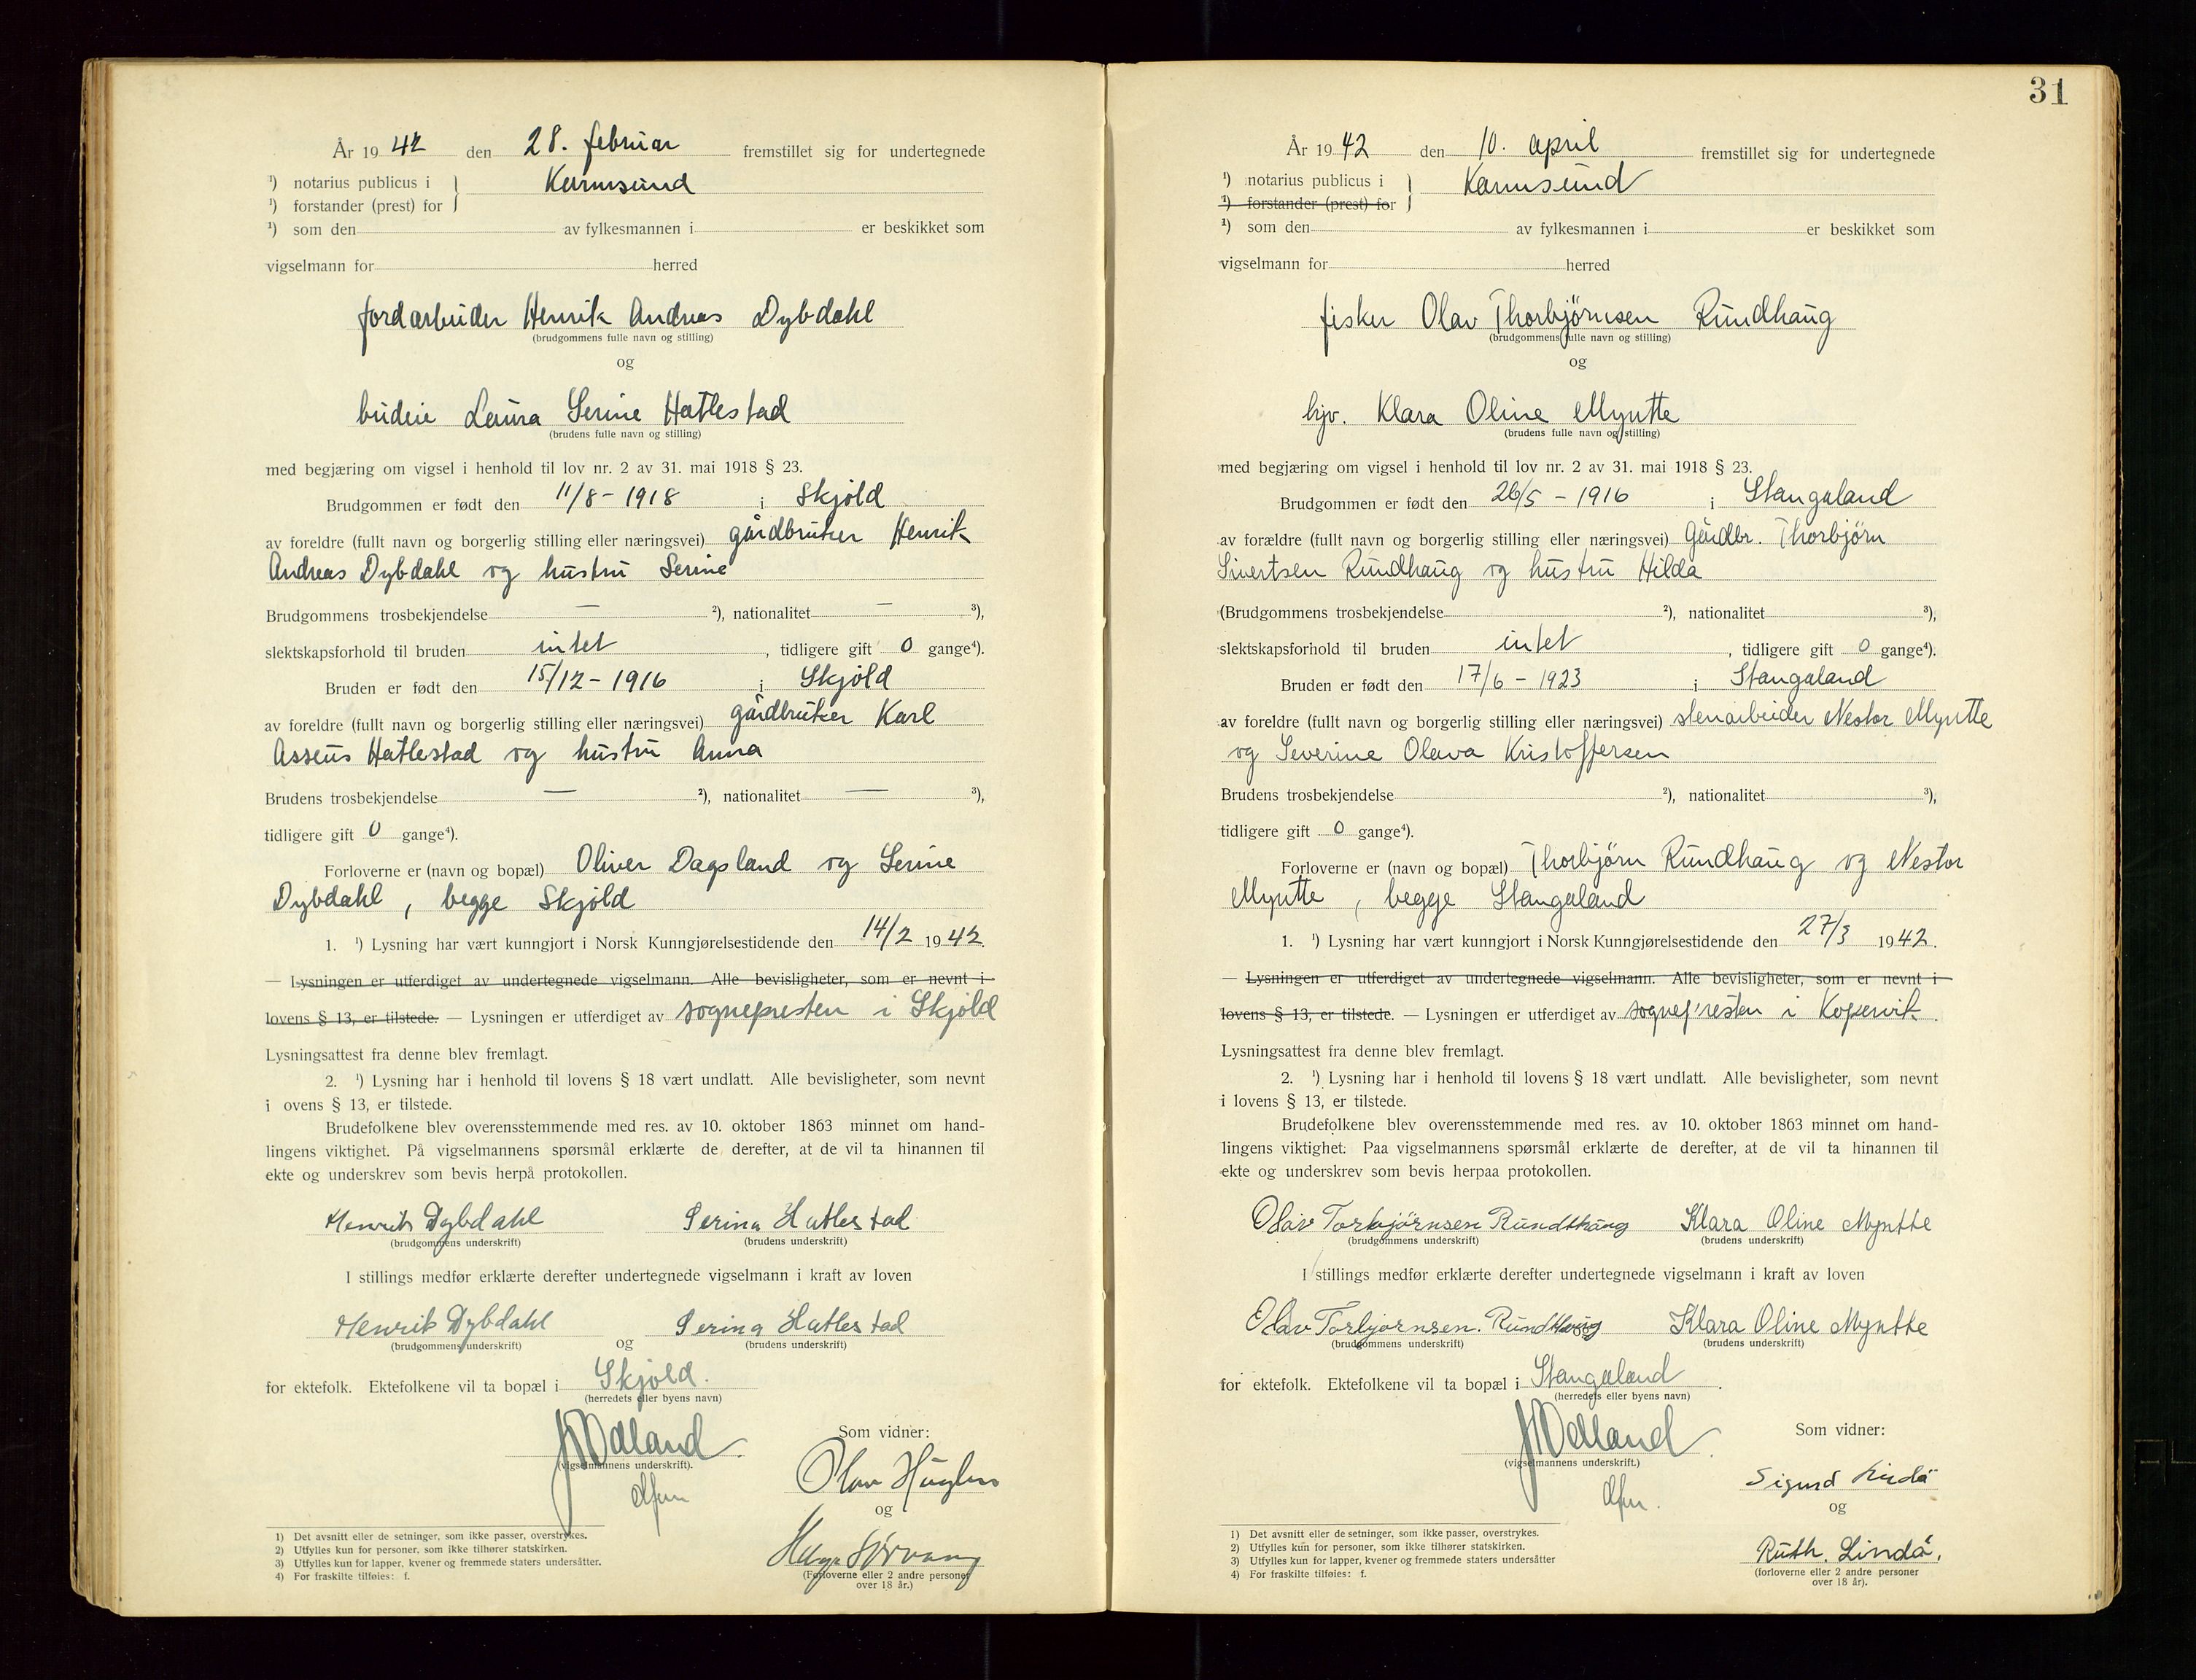 År 1942 den 28. februar fremstillet sig for undertegnede
¹) notarius publicus i } Karmsund
¹) forstander (prest) for
¹) som den av fylkesmannen i er beskikket som
vigselmann for herred
jordarbeider Henrik Andreas Dybdahl
(brudgommens fulle navn og stilling)
og
budeie Laura Serine Hatlestad
(brudens fulle navn og stilling)
med begjæring om vigsel i henhold til lov nr. 2 av 31. mai 1918 § 23.
Brudgommen er født den 11/8 - 1918 i Skjold
av foreldre (fullt navn og borgerlig stilling eller næringsvei) gårdbruker Henrik
Andreas Dybdahl og hustru Serine
Brudgommens trosbekjendelse — ²), nationalitet — ³),
slektskapsforhold til bruden intet, tidligere gift 0 gange⁴).
Bruden er født den 15/12 - 1916 i Skjold
av foreldre (fullt navn og borgerlig stilling eller næringsvei) gårdbruker Karl
Asseus Hatlestad og hustru Anna
Brudens trosbekjendelse — ²), nationalitet — ³),
tidligere gift 0 gange⁴).
Forloverne er (navn og bopæl) Oliver Dagsland og Serine
Dybdahl, begge Skjold
1. ¹) Lysning har vært kunngjort i Norsk Kunngjørelsestidende den 14/2 1942.
— Lysningen er utferdiget av undertegnede vigselmann. Alle bevisligheter, som er nevnt i
lovens § 13, er tilstede. — Lysningen er utferdiget av sognepresten i Skjold
Lysningsattest fra denne blev fremlagt.
2. ¹) Lysning har i henhold til lovens § 18 vært undlatt. Alle bevisligheter, som nevnt
i ovens § 13, er tilstede.
Brudefolkene blev overensstemmende med res. av 10. oktober 1863 minnet om hand-
lingens viktighet. På vigselmannens spørsmål erklærte de derefter, at de vil ta hinannen til
ekte og underskrev som bevis herpå protokollen.
Henrik Dybdahl Serina Hatlestad
(brudgommens underskrift) (brudens underskrift)
I stillings medfør erklærte derefter undertegnede vigselmann i kraft av loven
Henrik Dybdahl og Serina Hatlestad
(brudgommens underskrift) (brudens underskrift)
for ektefolk. Ektefolkene vil ta bopæl i Skjold.
(herredets eller byens navn)
Ødland
(vigselmannens underskrift).
Som vidner:
Olav
og
(Forloverne eller 2 andre personer
over 18 år.)
1) Det avsnitt eller de setninger, som ikke passer, overstrykes.
2) Utfylles kun for personer, som ikke tilhører statskirken.
3) Utfylles kun for lapper, kvener og fremmede staters undersåtter.
4) For fraskilte tilføies: f.
31
År 1942 den 10. april fremstillet sig for undertegnede
¹) notarius publicus i } Karmsund
¹) forstander (prest) for
¹) som den av fylkesmannen i er beskikket som
vigselmann for herred
fisker Olav Thorbjørnsen Rundhaug
(brudgommens fulle navn og stilling)
og
hjv. Klara Oline Myntte
(brudens fulle navn og stilling)
med begjæring om vigsel i henhold til lov nr. 2 av 31. mai 1918 § 23.
Brudgommen er født den 26/5 - 1916 i Stangaland
av forældre (fullt navn og borgerlig stilling eller næringsvei) Gårdbr. Thorbjørn
Sivertsen Rundhaug og hustru Hilda
(Brudgommens trosbekjendelse ²), nationalitet ³),
slektskapsforhold til bruden intet, tidligere gift 0 gange⁴).
Bruden er født den 17/6 - 1923 i Stangaland
av foreldre (fullt navn og borgerlig stilling eller næringsvei) stenarbeider Nestor Myntte
og Severine Olava Kristoffersen
Brudens trosbekjendelse ²), nationalitet ³),
tidligere gift 0 gange⁴).
Forloverne er (navn og bopæl) Thorbjørn Rundhaug og Nestor
Myntte, begge Stangaland
1. ¹) Lysning har vært kunngjort i Norsk Kunngjørelsestidende den 27/3 1942.
— Lysningen er utferdiget av undertegnede vigselmann. Alle bevisligheter, som er nevnt i
lovens § 13, er tilstede. — Lysningen er utferdiget av sognepresten i Kopervik.
Lysningsattest fra denne blev fremlagt.
2. ¹) Lysning har i henhold til lovens § 18 vært undlatt. Alle bevisligheter, som nevnt
i lovens § 13, er tilstede.
Brudefolkene blev overensstemmende med res. av 10. oktober 1863 minnet om hand-
lingens viktighet. Paa vigselmannens spørsmål erklærte de derefter, at de vil ta hinannen til
ekte og underskrev som bevis herpaa protokollen.
Olav Torbjørnsen Rundhaug Klara Oline Myntte
(brudgommens underskrift) (brudens underskrift)
I stillings medfør erklærte derefter undertegnede vigselmann i kraft av loven
Olav Torbjørnsen. Rundhaug Klara Oline Myntte
(brudgommens underskrift) (brudens underskrift)
for ektefolk. Ektefolkene vil ta bopæl i Stangaland.
(herredets eller byens navn)
Ødland
(vigselmannens underskrift.)
Som vidner:
Sigurd Lindø
og
Ruth. Lindø.
(forloverne eller 2 andre personer
over 18 år).
1) Det avsnitt eller de setninger, som ikke passer, overstrykes.
2) Utfylles kun for personer, som ikke tilhører statskirken.
3) Utfylles kun for lapper, kvener og fremmede staters undersåtter
4) For fraskilte tilføies: f.